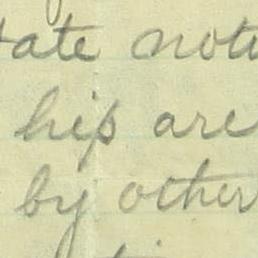 tate note
hip are
by other